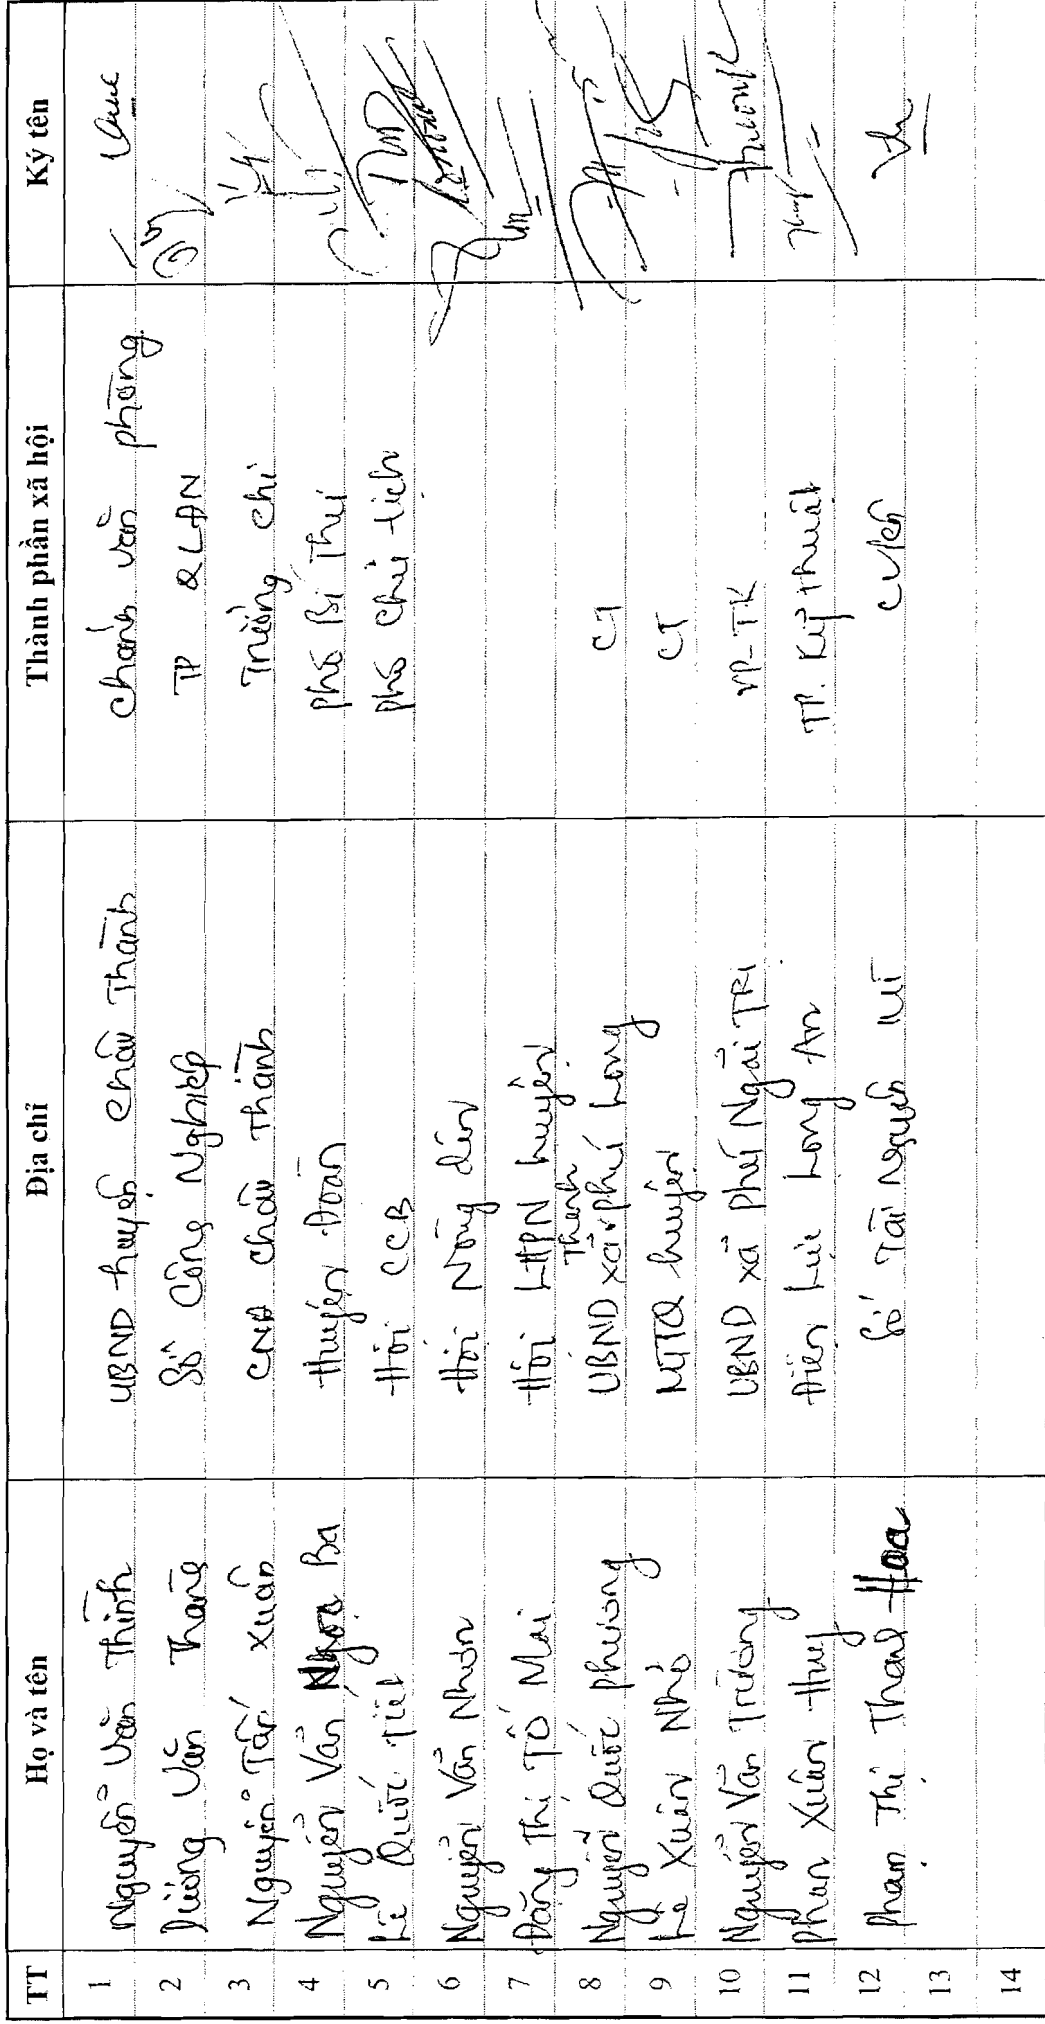 TT Họ và tên Địa chỉ Thành phần xã hội Ký tên
1 Nguyễn Văn Thịnh UBND huyện Châu Thành Chánh văn phòng
2 Dương Văn Thắng Sở Công Nghiệp TP QLĐN
3 Nguyễn Tấn Xuân CNĐ Châu Thành Trưởng chi
4 Nguyễn Văn Ngọc Ba Huyện Đoàn Phó Bí Thư
5 Lê Quốc Tiết Hội CCB Phó Chủ tịch
6 Nguyễn Văn Nhơn Hội Nông dân
7 Đặng Thị Tố Mai Hội LHPN huyện
8 Nguyễn Quốc Phương UBND xã Thanh Phú Long CT
9 Lê Xuân Nhỏ MTTQ huyện CT
10 Nguyễn Văn Trường UBND xã Phú Ngãi TRỊ VP-TK
11 Phan Xuân Huy Điện Lực Long An TP. Kỹ thuật
12 Phạm Thị Thanh Hoa Sở Tài Nguyên MT
13
14